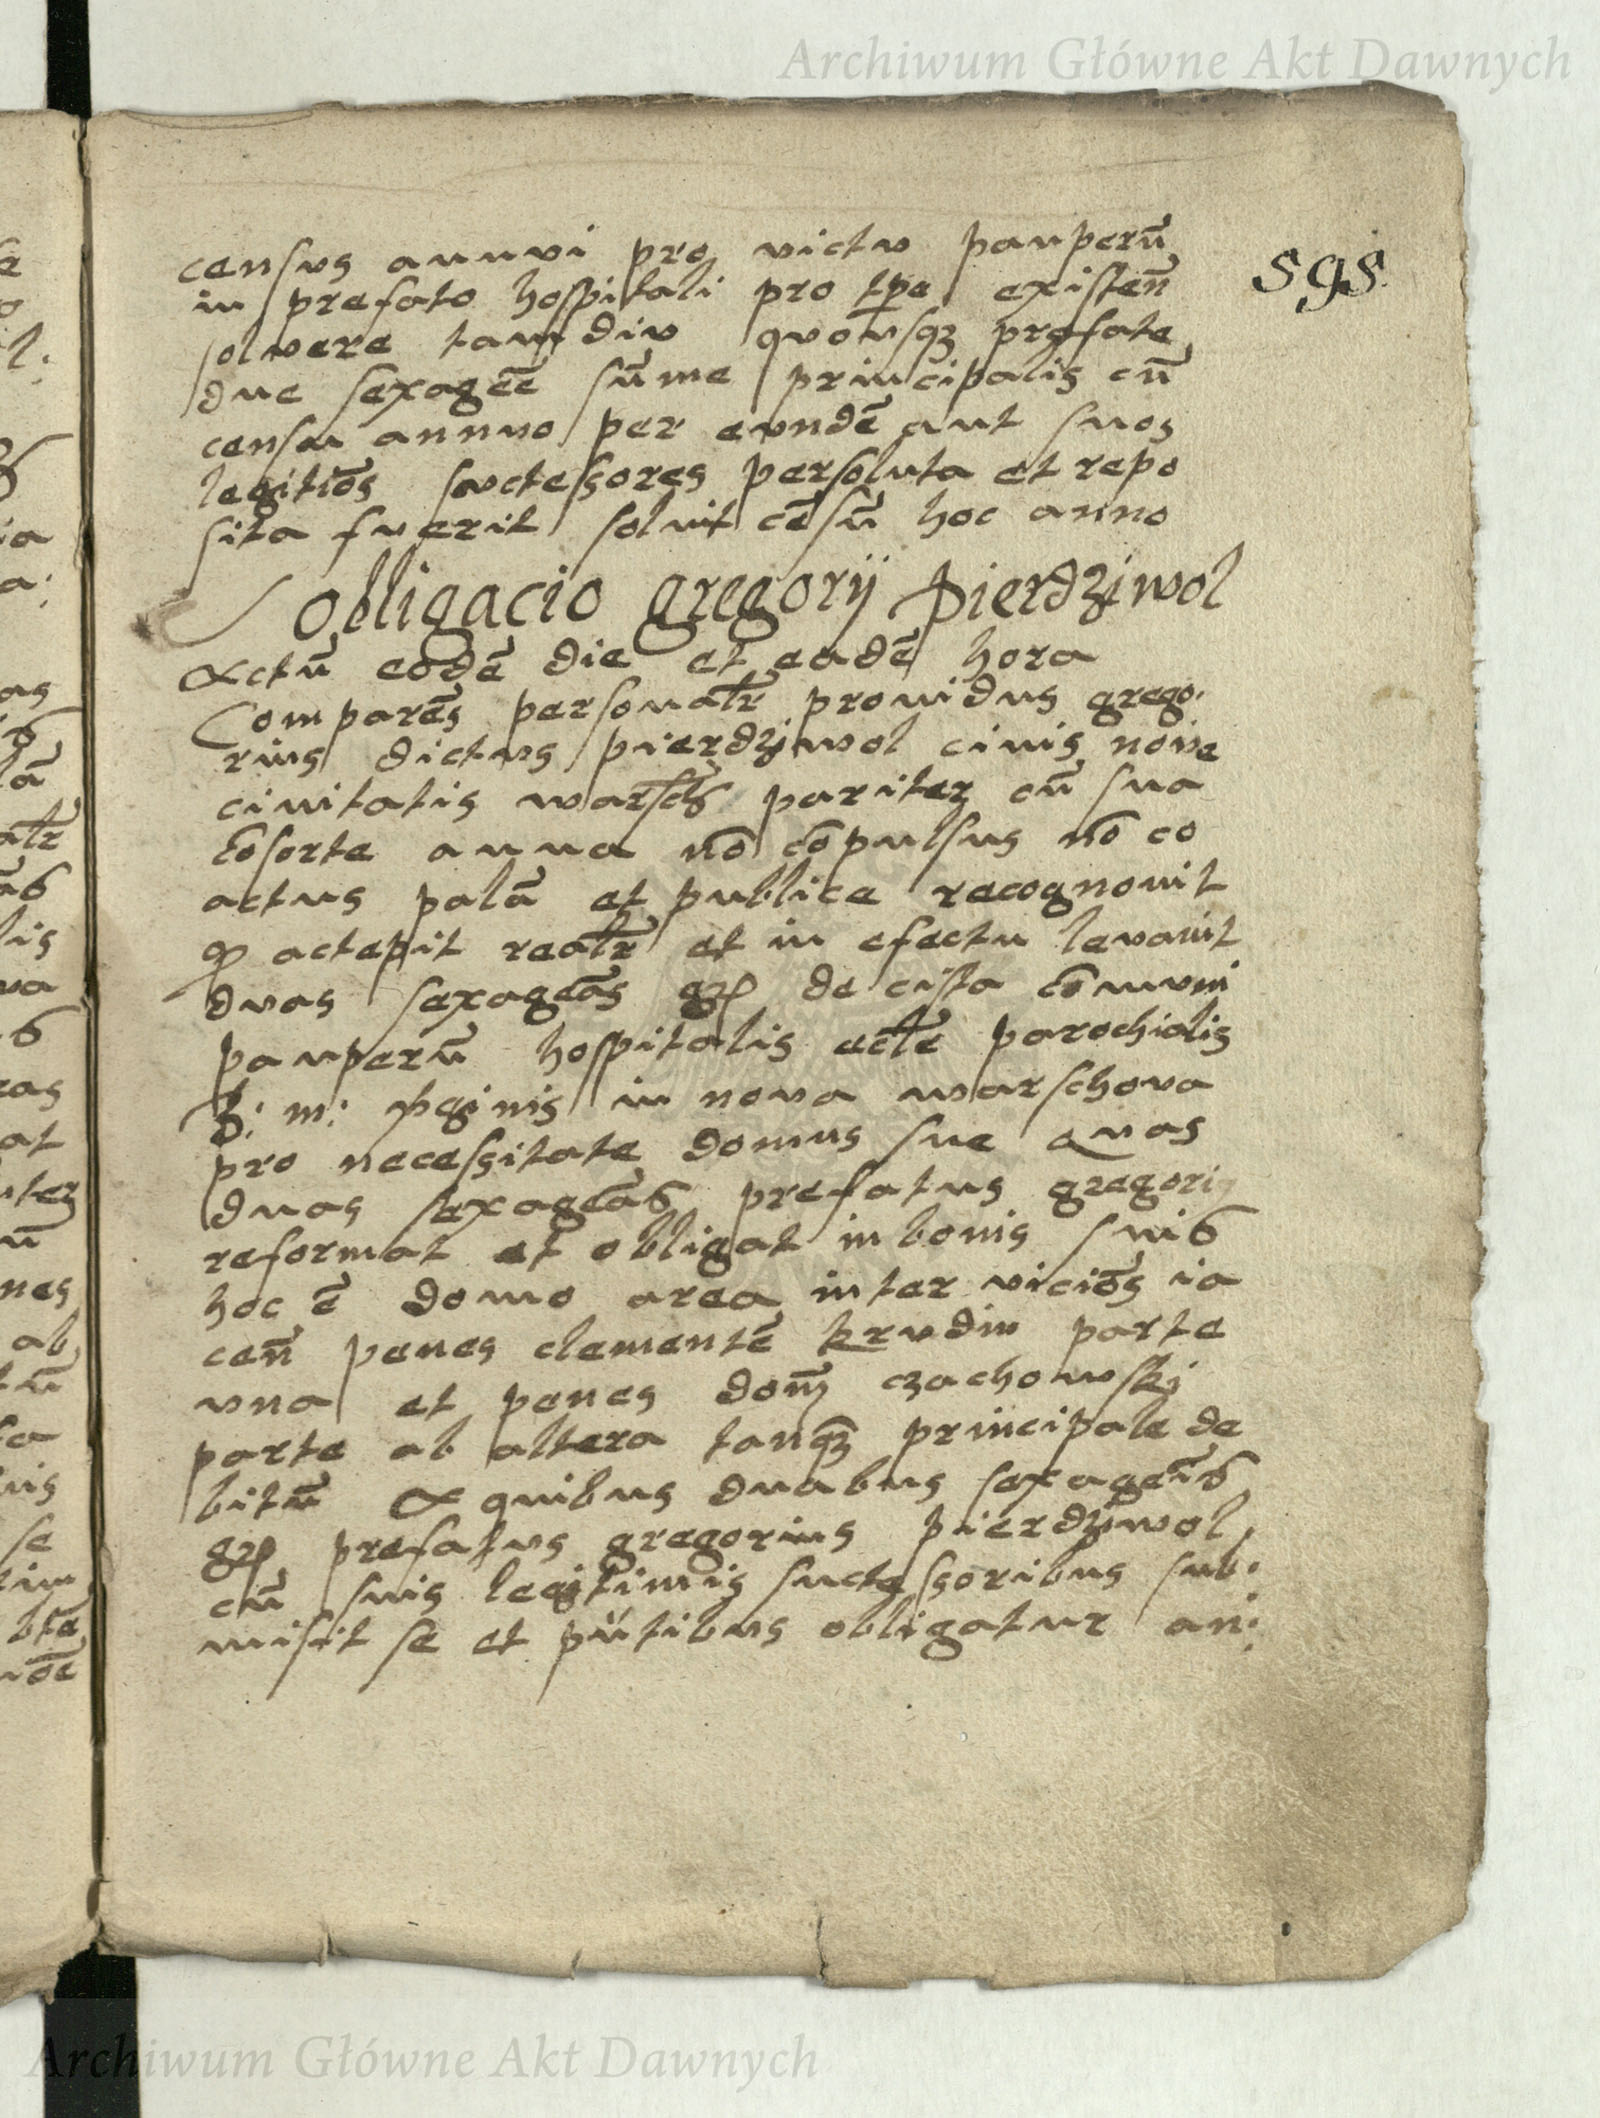 Archiwum Główne Akt Dawnych
censvs annvi pro victv pauperū
in prefato hospitali pro tp̄e existen̄
solvere tam div qvovsqꝫ prefate
due sexagēe sūme principalis cū
censu annuo per evndē aut suos
legitiōs svctessores persoluta et repo
sita fverit soluit cēsū hoc anno
sgs
Obligacio gregorij Pierdziwol
Actū eodē die et eadē hora
Comparēs personalr̄ prouidus grego:
rius dictvs pierdziwol ciuis noue
ciuitatis warsch pariter cū sua
cōsorte anna nō cōpulsus nō co
actus palā et publice recognouit
ꝙ actepit realr̄ et in efectu levauit
dvas sexageās gr de cista cōmvni
pauperū hospitalis eccl̄e parochialis
b: m: v̄ginis in nova warschova
pro necessitate domus sue Qvas
duas sexageās prefatus gregori
reformat et obligat in bonis suis
hoc ē domo area inter viciōs ia
cen̄ penes clementē krvdin parte
vna et penes dom̄ czachowskj
parte ab altera tanqꝫ principale de
bitū A quibus duabus sexageīs
gr prefatvs gregorius pierdziwol
cū suis legitimis suctessoribus sub:
misit se et pn̄tibus obligatur an:
Archiwum Główne Akt Dawnych